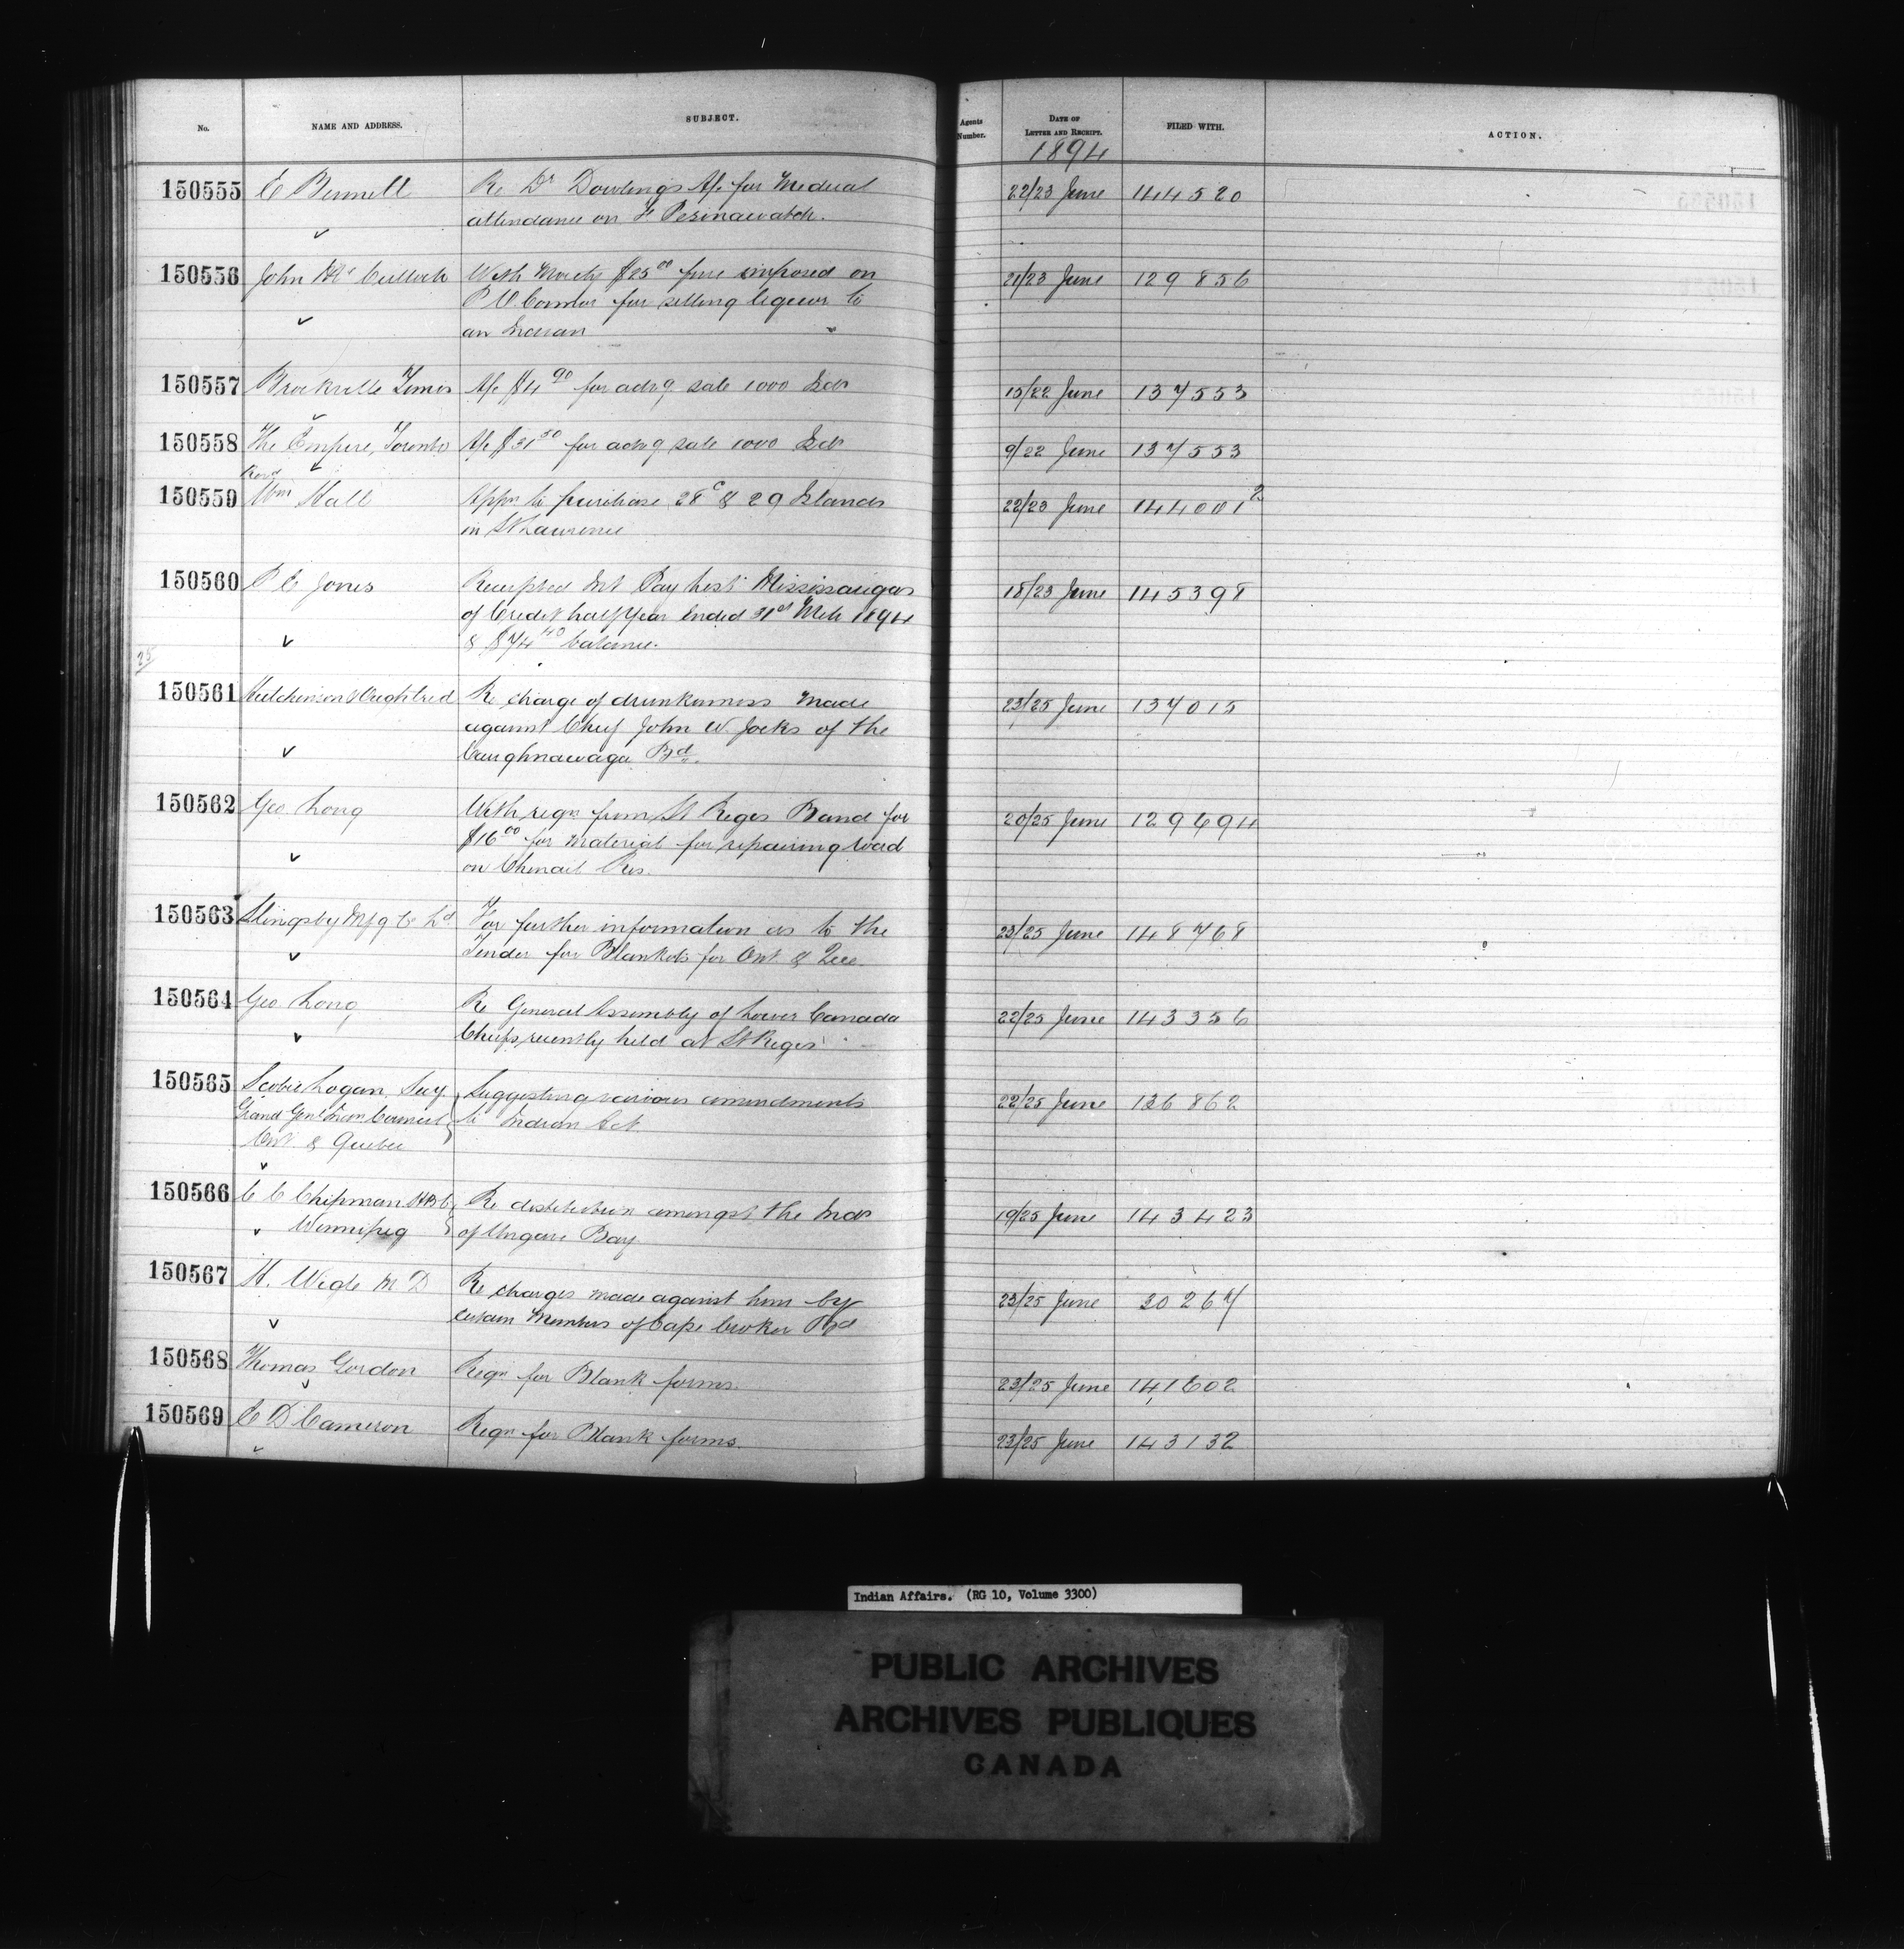 No. NAME AND ADDRESS. SUBJECT. Agents Number. DATE OF LETTER AND RECEIPT. FILED WITH. ACTION.
1894
150555 E Bennett Re Dr Dowling's A/c for Medical 22/23 June 144520
attendance on F. Pesinawatch.
150556 John McCulloch With Moiety $25.00 fine imposed on 21/23 June 129856
P O'Connor for selling liquor to
an Indian
150557 Brockville Times A/c $4 90 for advg. sale 1000 Isds 15/22 June 137553
150558 The Empire, Toronto A/c $31 50 for advg sale 1000 Isds 9/22 June 137553
150559 Revd Wm Hall Appn to purchase 28c & 29 Islands 22/23 June 144001 2
in St Lawrence
150560 P E Jones Receipted Int Pay List Mississaugas 18/23 June 145398
of Credit half Year Ended 31st Mch 1894
& $74 40 balance.
25
150561 Hutchinson & Oughtred Re charge of drunkenness made 23/25 June 137015
against Chief John W. Jocks of the
Caughnawaga Bd.
150562 Geo. Long With reqn from St Regis Band for 20/25 June 129694
$16 00 for material for repairing road
on Chenail Res.
150563 Slingsby Mfg Co Ld For further information as to the 23/25 June 148768
Tender for Blankets for Ont. & Que.
150564 Geo. Long Re General Assembly of Lower Canada 22/25 June 143356
Chiefs recently held at St Regis
150565 Scobie Logan, Secy. Suggesting various amendments 22/25 June 136862
Grand Genl Indn Council to Indian Act.
Ont. & Quebec
150566 C C Chipman H B Co Re distribution amongst the Inds 19/25 June 143423
Winnipeg of Ungava Bay.
150567 H. Wigle M D Re charges made against him by 23/25 June 30267
certain Members of Cape Croker Bd
150568 Thomas Gordon Reqn for Blank forms. 23/25 June 141602
150569 E D Cameron Reqn for Blank forms. 23/25 June 143132
Indian Affairs. (RG 10, Volume 3300)
PUBLIC ARCHIVES
ARCHIVES PUBLIQUES
CANADA